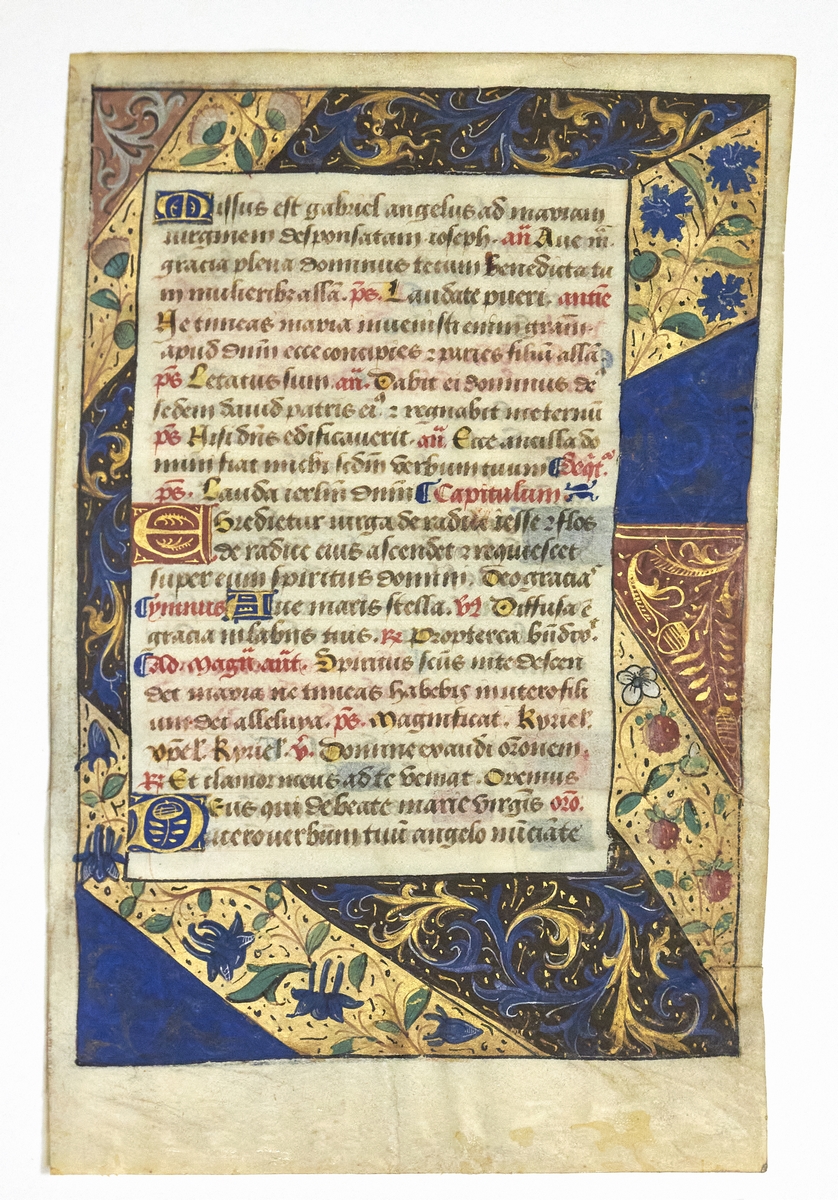 Missus est gabriel angelus ad mariam
uirginem desponsatam ioseph. añ Aue m̃.
gracia plena dominus tecum benedicta tu
in mulieribꝫ allã. ps̃. Laudate pueri. antiē
Ne timeas maria inuenisti enim grañ
apud dñm ecce concipies ⁊ paries filiū allã.
ps̃ Letatus sum. añ. Dabit ei dominus de᷒
sedem dauid patris ei᷒ ⁊ regnabit in eternū
ps̃ Nisi dñs edificauerit. añ. Ecce ancilla do
mini fiat michi scdm̃ verbum tuum
ps̃. Lauda ierlm̃ dñm Capitulum
Egredietur uirga de radice iesse ⁊ flos
de radice eius ascendet ⁊ requiescet
super eum spiritus domini. Deo gracia᷒
ymnus Aue maris stella. v̉. Diffusa ē
gracia in labiis tuis. ꝶ Propterea bñdix᷒.
Ad magñ. añt. Spiritus scũs in te descen
det maria ne timeas habebis in utero fili
um dei alleluya. ps̃. Magnificat. Kyriel̃.
xp̃el̃. Kyriel̃. v̉. Domine exaudi orõnem.
ꝶ Et clamor meus ad te veniat. Oremus
Deus qui de beate marie virgĩs orõ.
utero uerbum tuũ angelo nũciãte